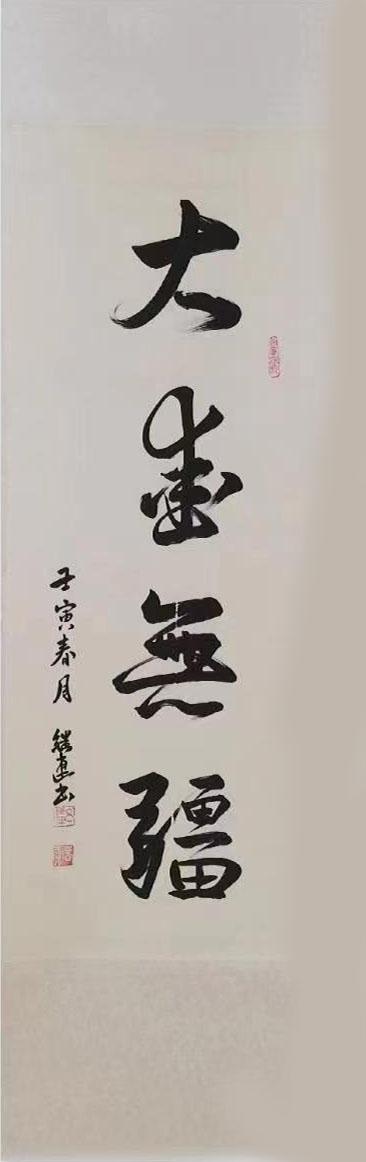 大愛無疆
壬寅春月 書